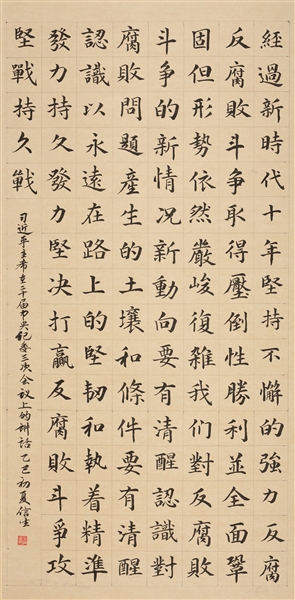 經過新時代十年堅持不懈的強力反腐
反腐敗斗爭取得壓倒性勝利並全面鞏
固但形勢依然嚴峻復雜我們對反腐敗
斗爭的新情况新動向要有清醒認識對
腐敗問題產生的土壤和條件要有清醒
認識以永遠在路上的堅韌和執着精準
發力持久發力堅决打贏反腐敗斗爭攻
堅戰持久戰
习近平主席在二十届中央纪委三次会议上的讲话 乙巳初夏信生